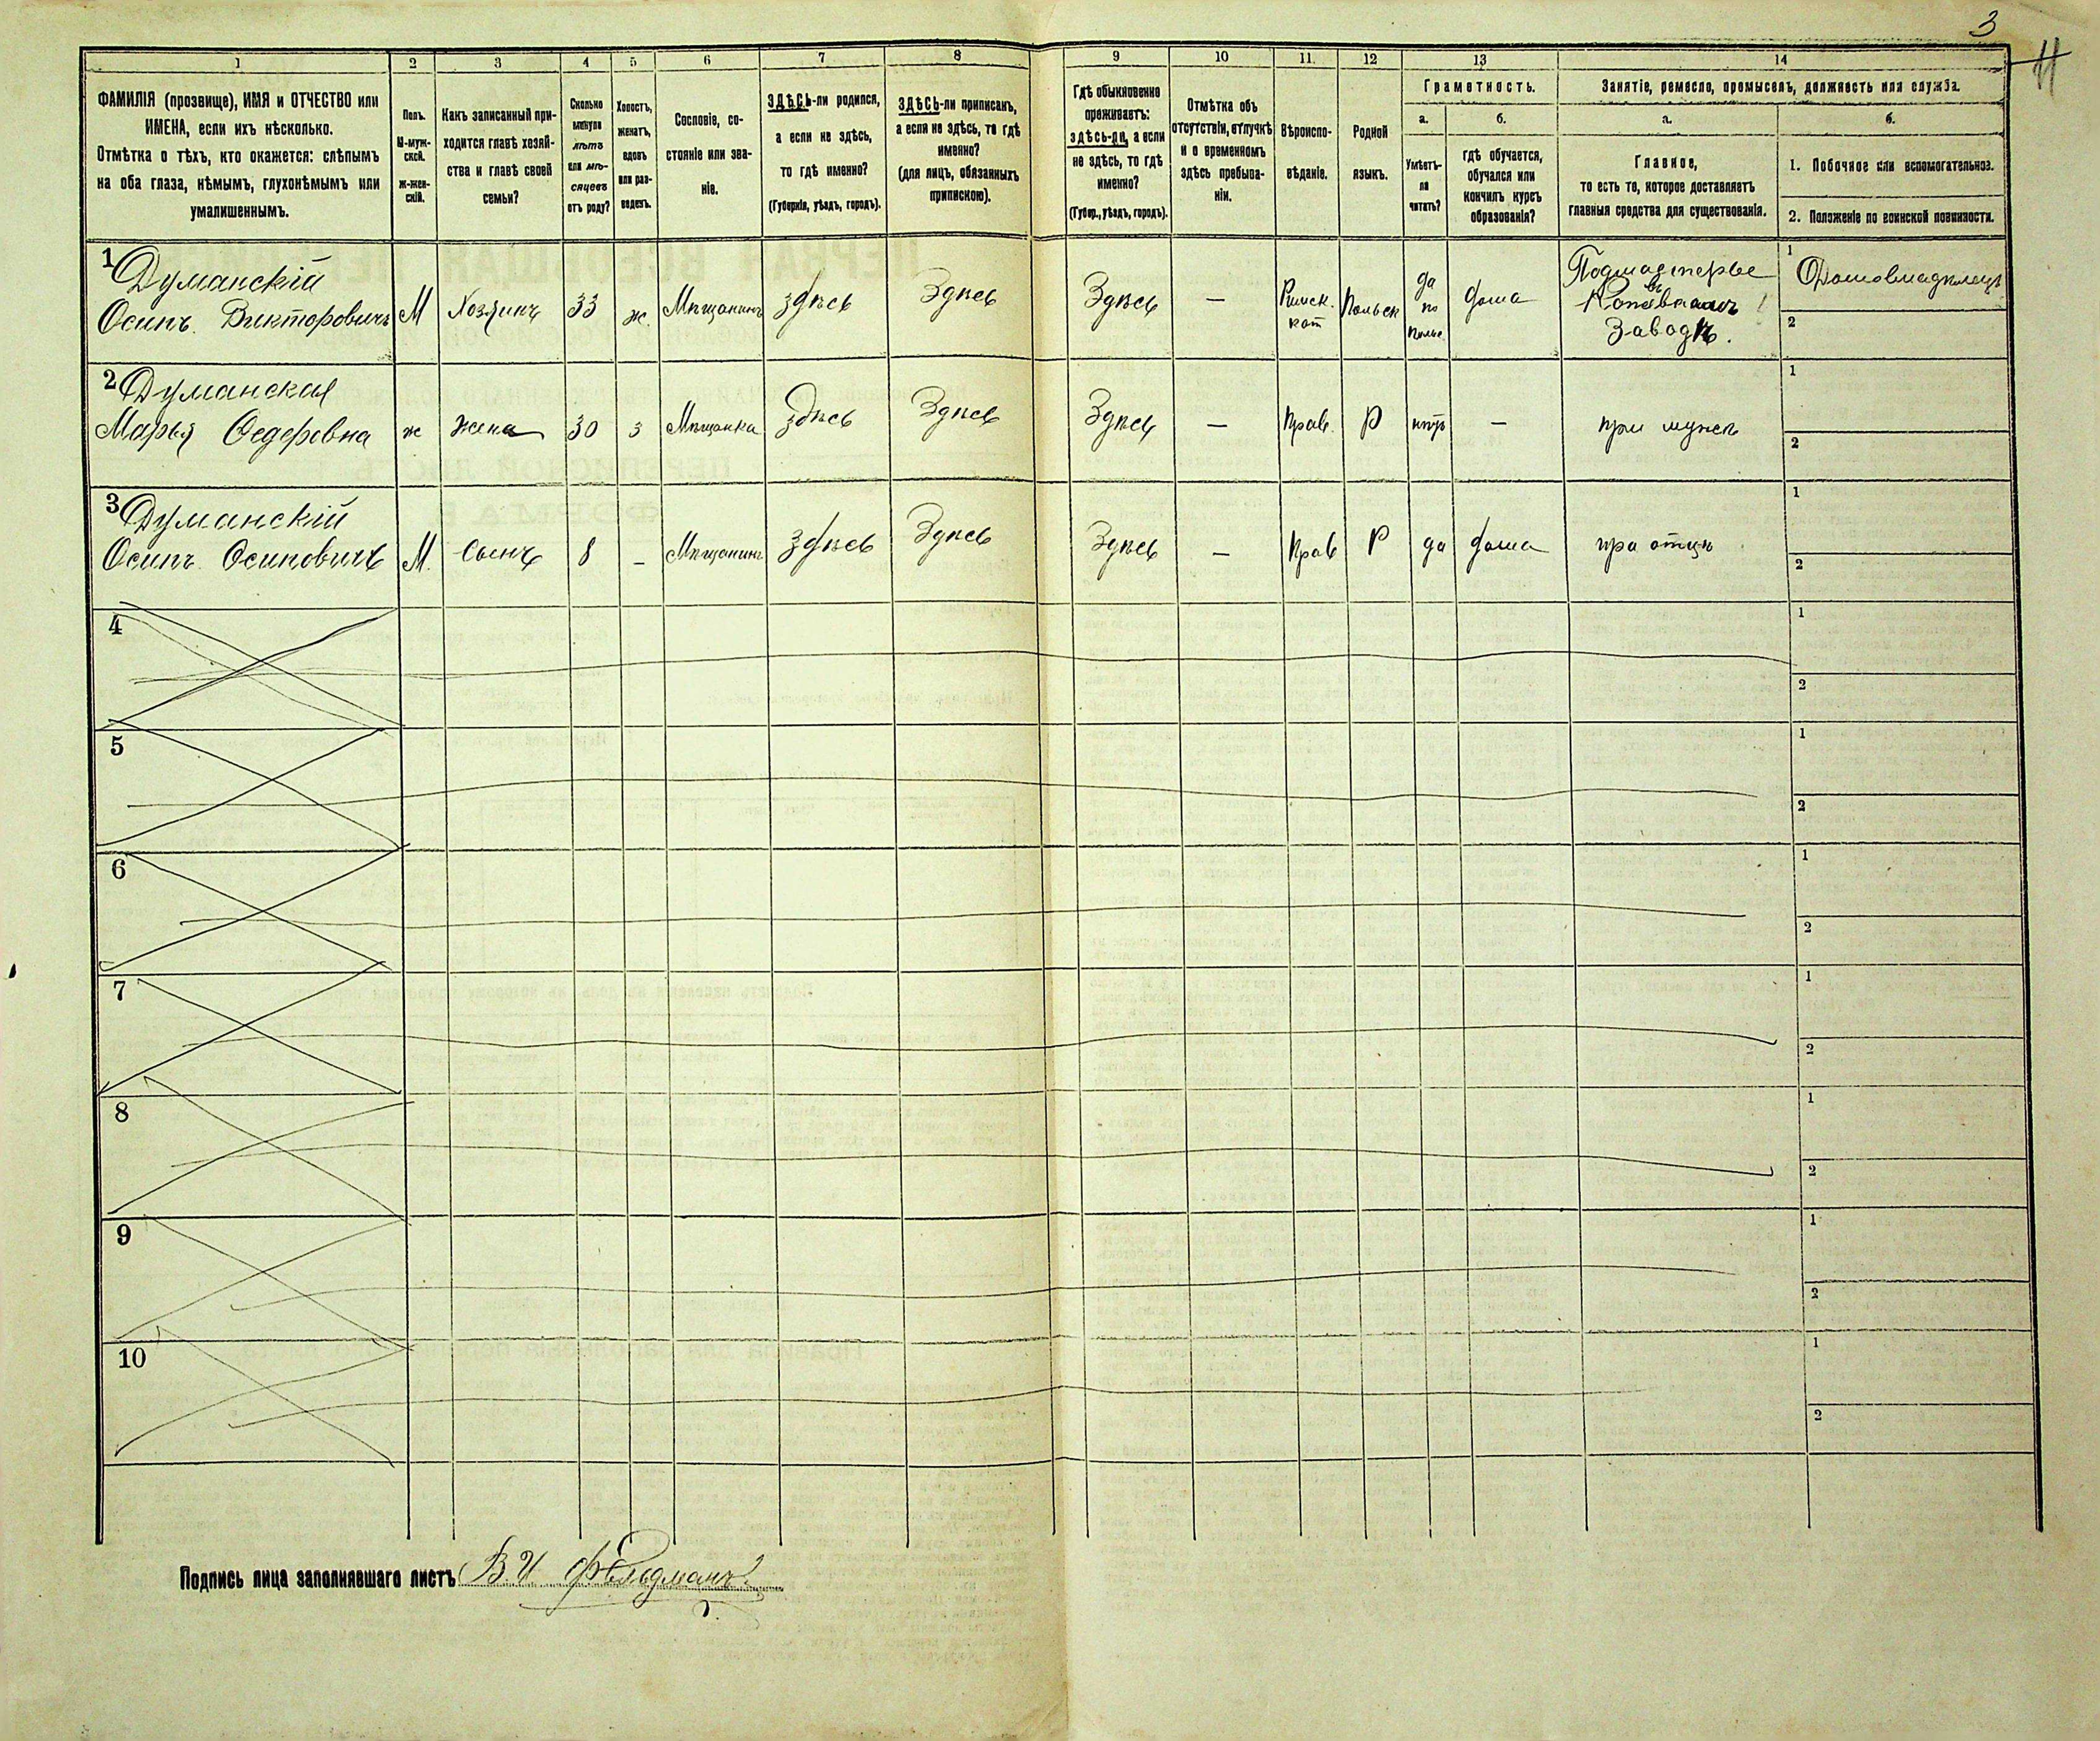 3
11
1 2 3 4 5 6 7 8 9 10 11. 12 13 14
ФАМИЛІЯ (прозвище), ИМЯ и ОТЧЕСТВО или
ИМЕНА, если ихъ нѣсколько.
Отмѣтка о тѣхъ, кто окажется: слѣпымъ
на оба глаза, нѣмымъ, глухонѣмымъ или
умалишеннымъ.
Полъ.
М-муж-
ской.
Ж-жен-
скій.
Какъ записанный при-
ходится главѣ хозяй-
ства и главѣ своей
семьи?
Сколько
минуло
лѣтъ
или мѣ-
сяцевъ
отъ роду?
Холостъ,
женатъ,
вдовъ
или раз-
веденъ.
Сословіе, со-
стояніе или зва-
ніе.
ЗДѢСЬ-ли родился,
а если не здѣсь,
то гдѣ именно?
(Губернія, уѣздъ, городъ).
ЗДѢСЬ-ли приписанъ,
а если не здѣсь, то гдѣ
именно?
(для лицъ, обязанныхъ
припискою).
Гдѣ обыкновенно
проживаетъ:
здѣсь-ли, а если
не здѣсь, то гдѣ
именно?
(Губер., уѣздъ, городъ).
Отмѣтка объ
отсутствіи, отлучкѣ
и о временномъ
здѣсь пребыва-
ніи.
Вѣроиспо-
вѣданіе.
Родной
языкъ.
Грамотность.
а.
Умѣетъ-
ли
читать?
б.
гдѣ обучается,
обучался или
кончилъ курсъ
образованія?
Занятіе, ремесло, промыселъ, должность или служба.
а.
Главное,
то есть то, которое доставляетъ
главныя средства для существованія.
б.
1. Побочное или вспомогательное.
2. Положеніе по воинской повинности.
1 Думанскій
Осипъ Викторовичъ М Хозяинъ 33 ж. Мѣщанинъ здѣсь Здѣсь Здѣсь — Римск. кат Польск да по польс дома Подмастерье въ Заводѣ. 1 Домовладѣлецъ
2
2 Думанская
Марья Федоровна ж жена 30 з Мѣщанка здѣсь Здѣсь Здѣсь — Прав. Р нѣтъ — при мужѣ 1
2
3 Думанскій
Осипъ Осиповичъ М. Сынъ 8 - Мѣщанинъ здѣсь Здѣсь Здѣсь — Прав Р да дома при отцѣ 1
2
4 1
2
5 1
2
6 1
2
7 1
2
8 1
2
9 1
2
10 1
2
Подпись лица заполнявшаго листъ В. И Фельдманъ